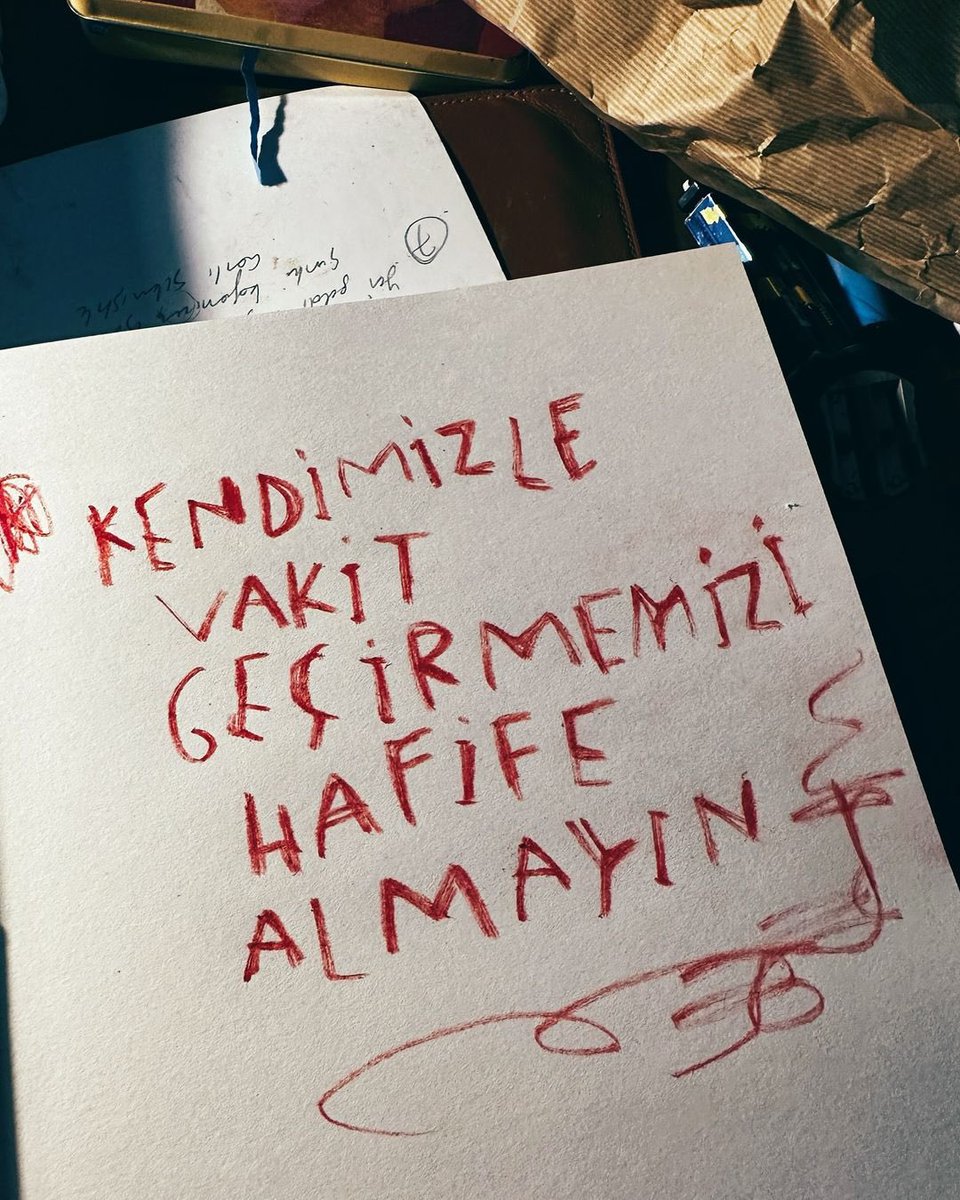 7
KENDİMİZLE
VAKİT
GEÇİRMEMİZİ
HAFİFE
ALMAYIN